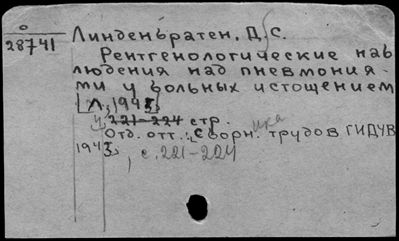 0
28741
Линденбратен, Д. С.
Рентгенологические наб
людения над пневмония-
ми у больных истощением
Л, 1943,
4, 221-224 стр.
Отд. отт.: Сборника трудов ГИДУВ
1943, с. 221-224